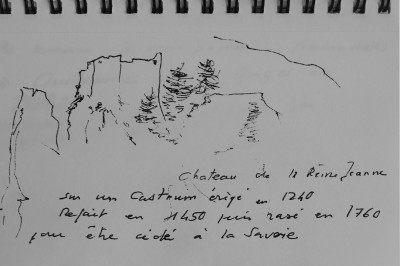 Chateau de la Reine Jeanne
Sur un Castrum érigé en 1240
Refait en 1450 puis rasé en 1760
pour être cédé à la Savoie